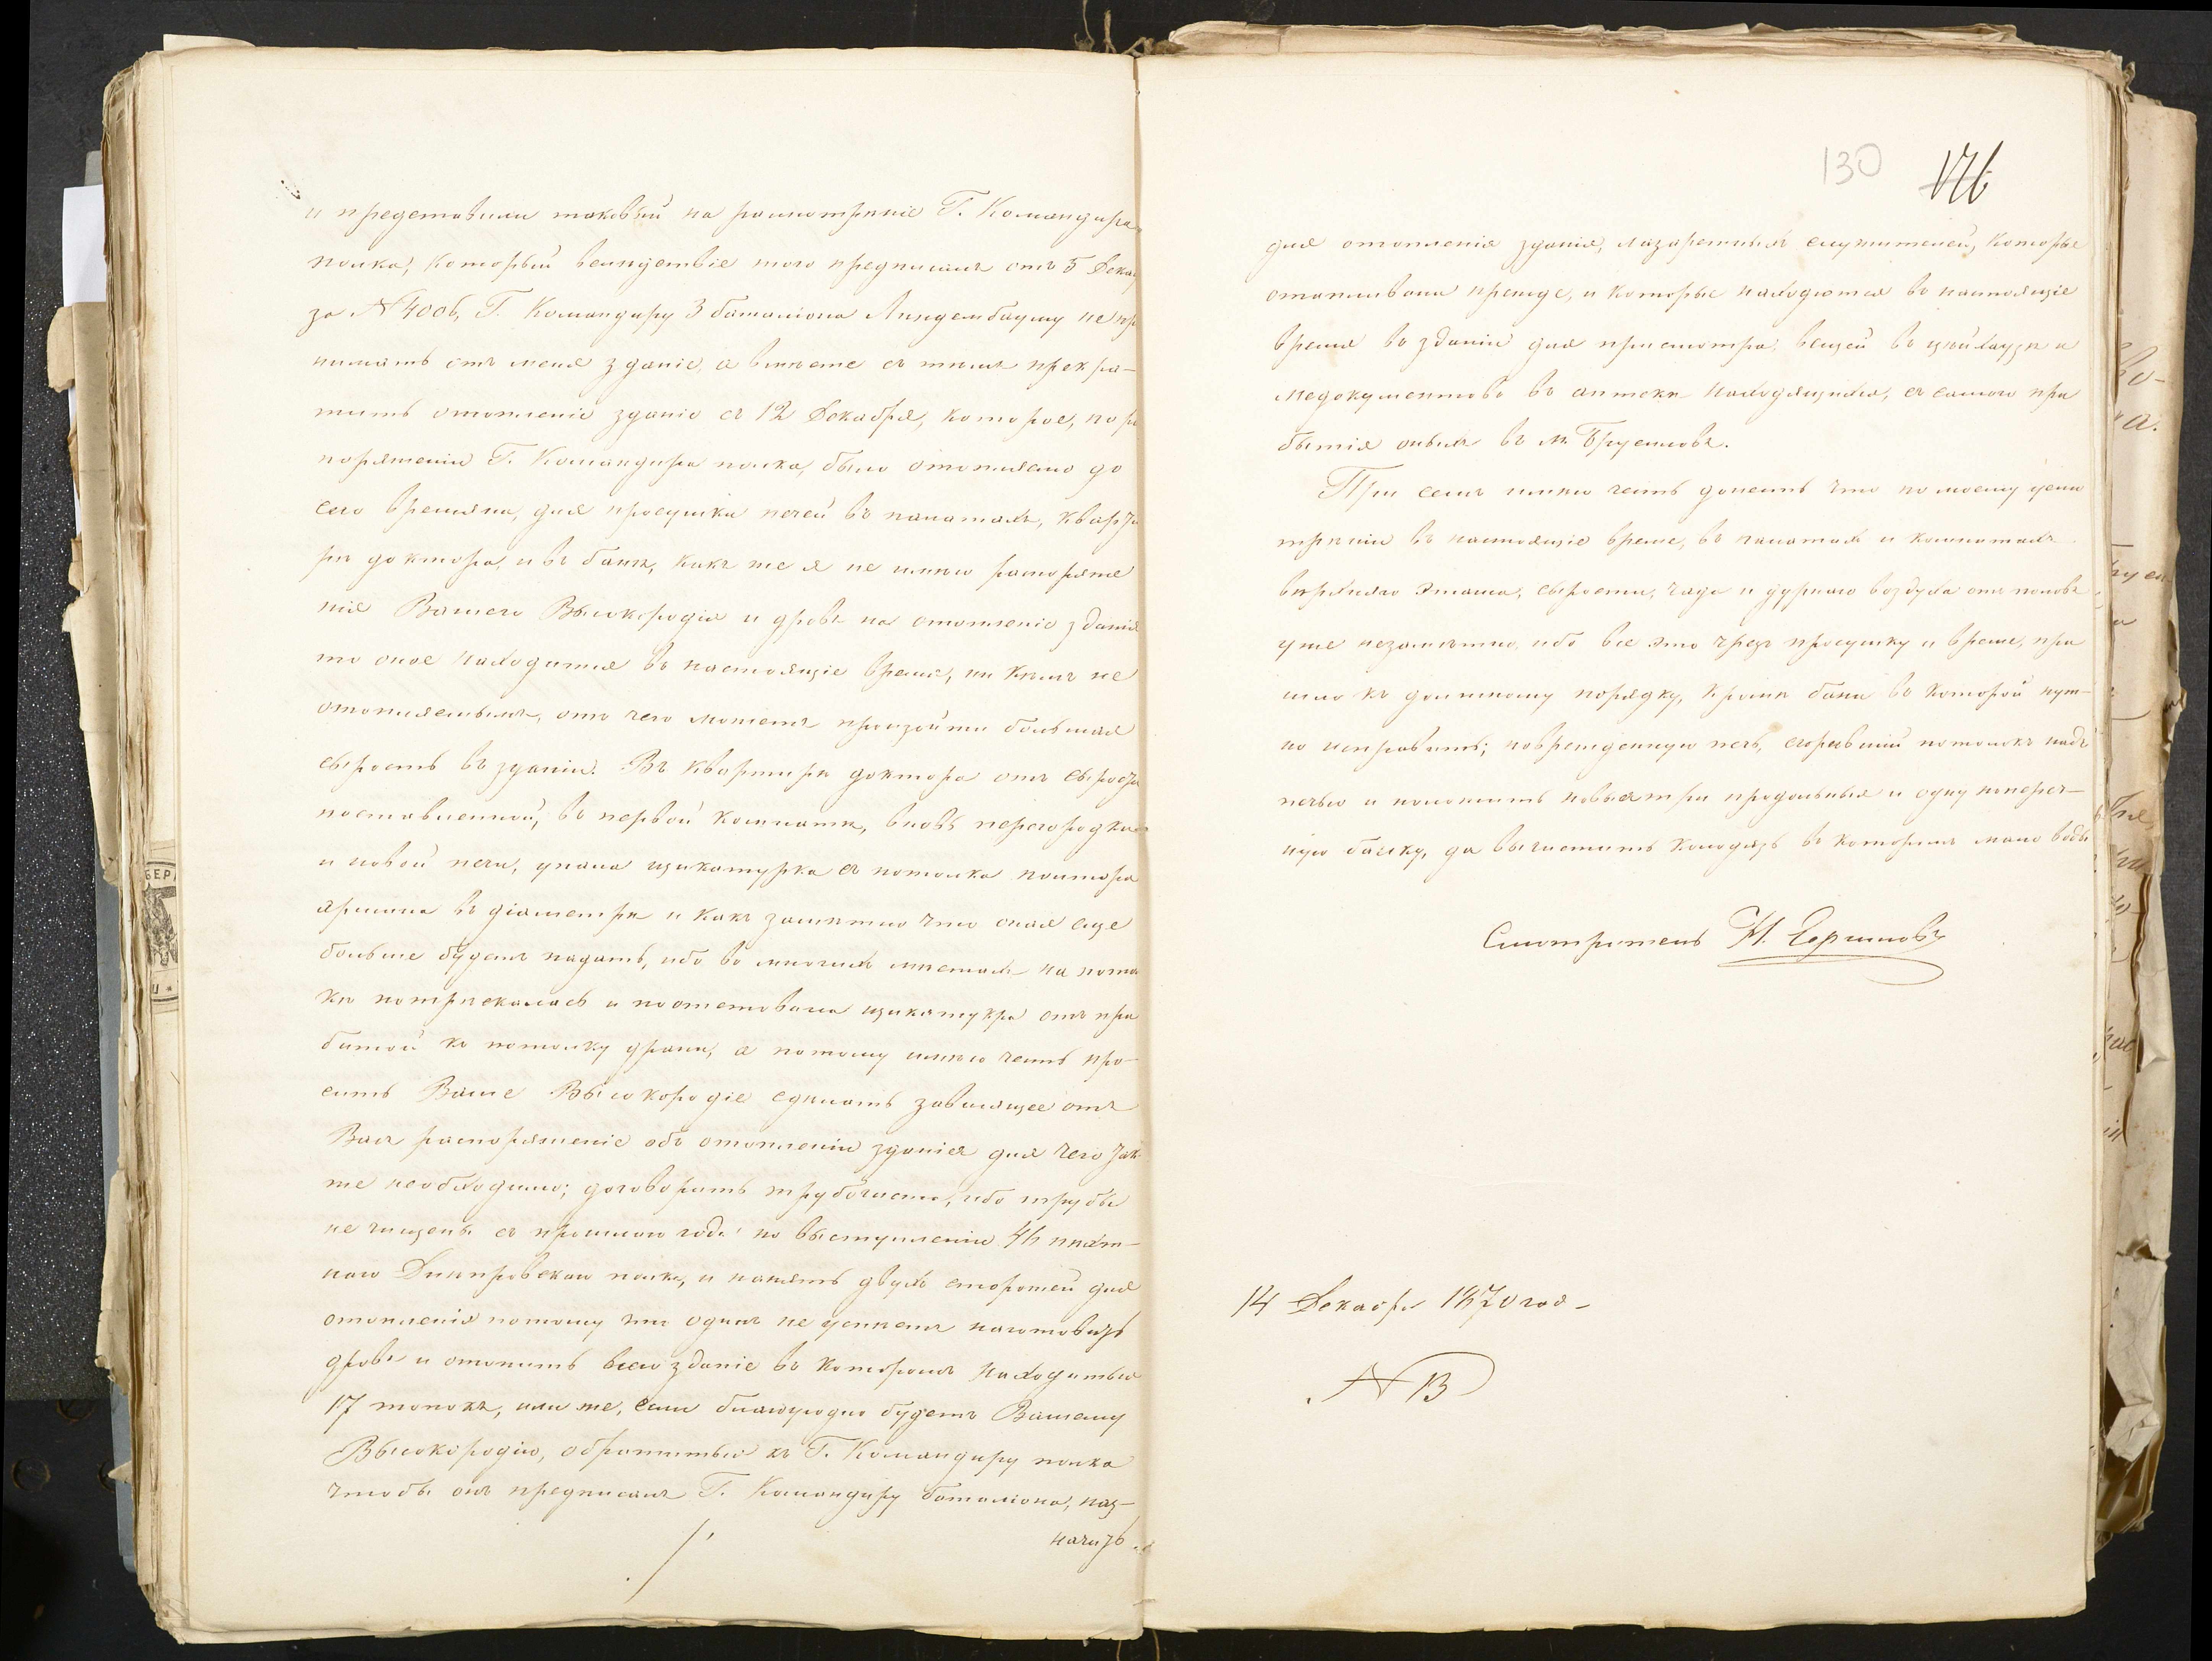 и представили таковый на разсмотрѣніе Г. Командира
полка, который вслѣдствіе того предписалъ отъ 5 Декаб
за № 4006, Г. Командиру 3 баталіона Линдембауму не пр
нимать отъ меня зданіе, а вмѣсте съ тѣмъ прекра-
тить отопленіе зданіе съ 12 Декабря, которое, по ра
поряженію Г. Командира полка, было отопляемо до
сего времяни, для просушки печей въ палатахъ, кварти
рѣ доктора, и въ банѣ, какъ же я не имѣю распоряже
нія Вашего Высокородія и дровъ на отопленіе зданія
то оное находится въ настоящіе время, ни кѣмъ не
отопляемымъ, отъ чего можетъ произойти большая
сырость въ зданіи. Въ квартирѣ доктора отъ сырости
поставленной, въ первой комнатѣ, вновь перегородки
и новой печи, упала щикатурка съ потолка полтора
аршина въ діаметрѣ и какъ замѣтно что оная еще
больше будетъ падать, ибо во многихъ мѣстахъ на потол
кѣ потрѣскалась и поотстовала щикатукра отъ при
битой къ потолку драни, а потому имѣю честь про-
сить Ваше Высокородіе сдѣлать зависящее отъ
Васъ распоряженіе объ отопленіи зданія для чего так
же необходимо; договорить трубочиста, ибо трубы
не чищены съ прошлого года по выступленіи 46 пѣхот-
наго Днѣпровскаго полка, и нанять двухъ сторожей для
отопленія потому что одинъ не успѣетъ наготовить
дровъ и отопить всего зданіе въ которомъ находиться
17 топокъ, или же, если благоугодно будетъ Вашему
Высокородію, обратиться къ Г. Командиру полка
чтобы онъ предписалъ Г. Командиру баталіона, наз-
начить
130 176
для отопленія зданія, лазаретныхъ служителей, которые
отапливали прежде, и которые находются въ настоящіе
время въ зданіи для присмотра вещей въ цейхаузѣ и
медокументовъ въ аптеки находящихся, съ самого при
бытія оныхъ въ м. Брусиловъ.
При семъ имѣю честь донесть что по моему усмо
трѣнію въ настоящіе время, въ палатах и комнатахъ
верхняго этажа, сырости, чада и дурного воздуха отъ половъ
уже незамѣтно, ибо все это чрезъ просушку и время, при
шло къ должному порядку, кромѣ бани въ которой нуж-
но исправить; поврежденную печь, сгорѣвшій потолокъ надъ
печью и положить новыя три продольныя и одну попереч-
ную балку, да вычистить колодязь въ которомъ мало воды
Смотритель
14 Декабря 1870 год-
№ 13